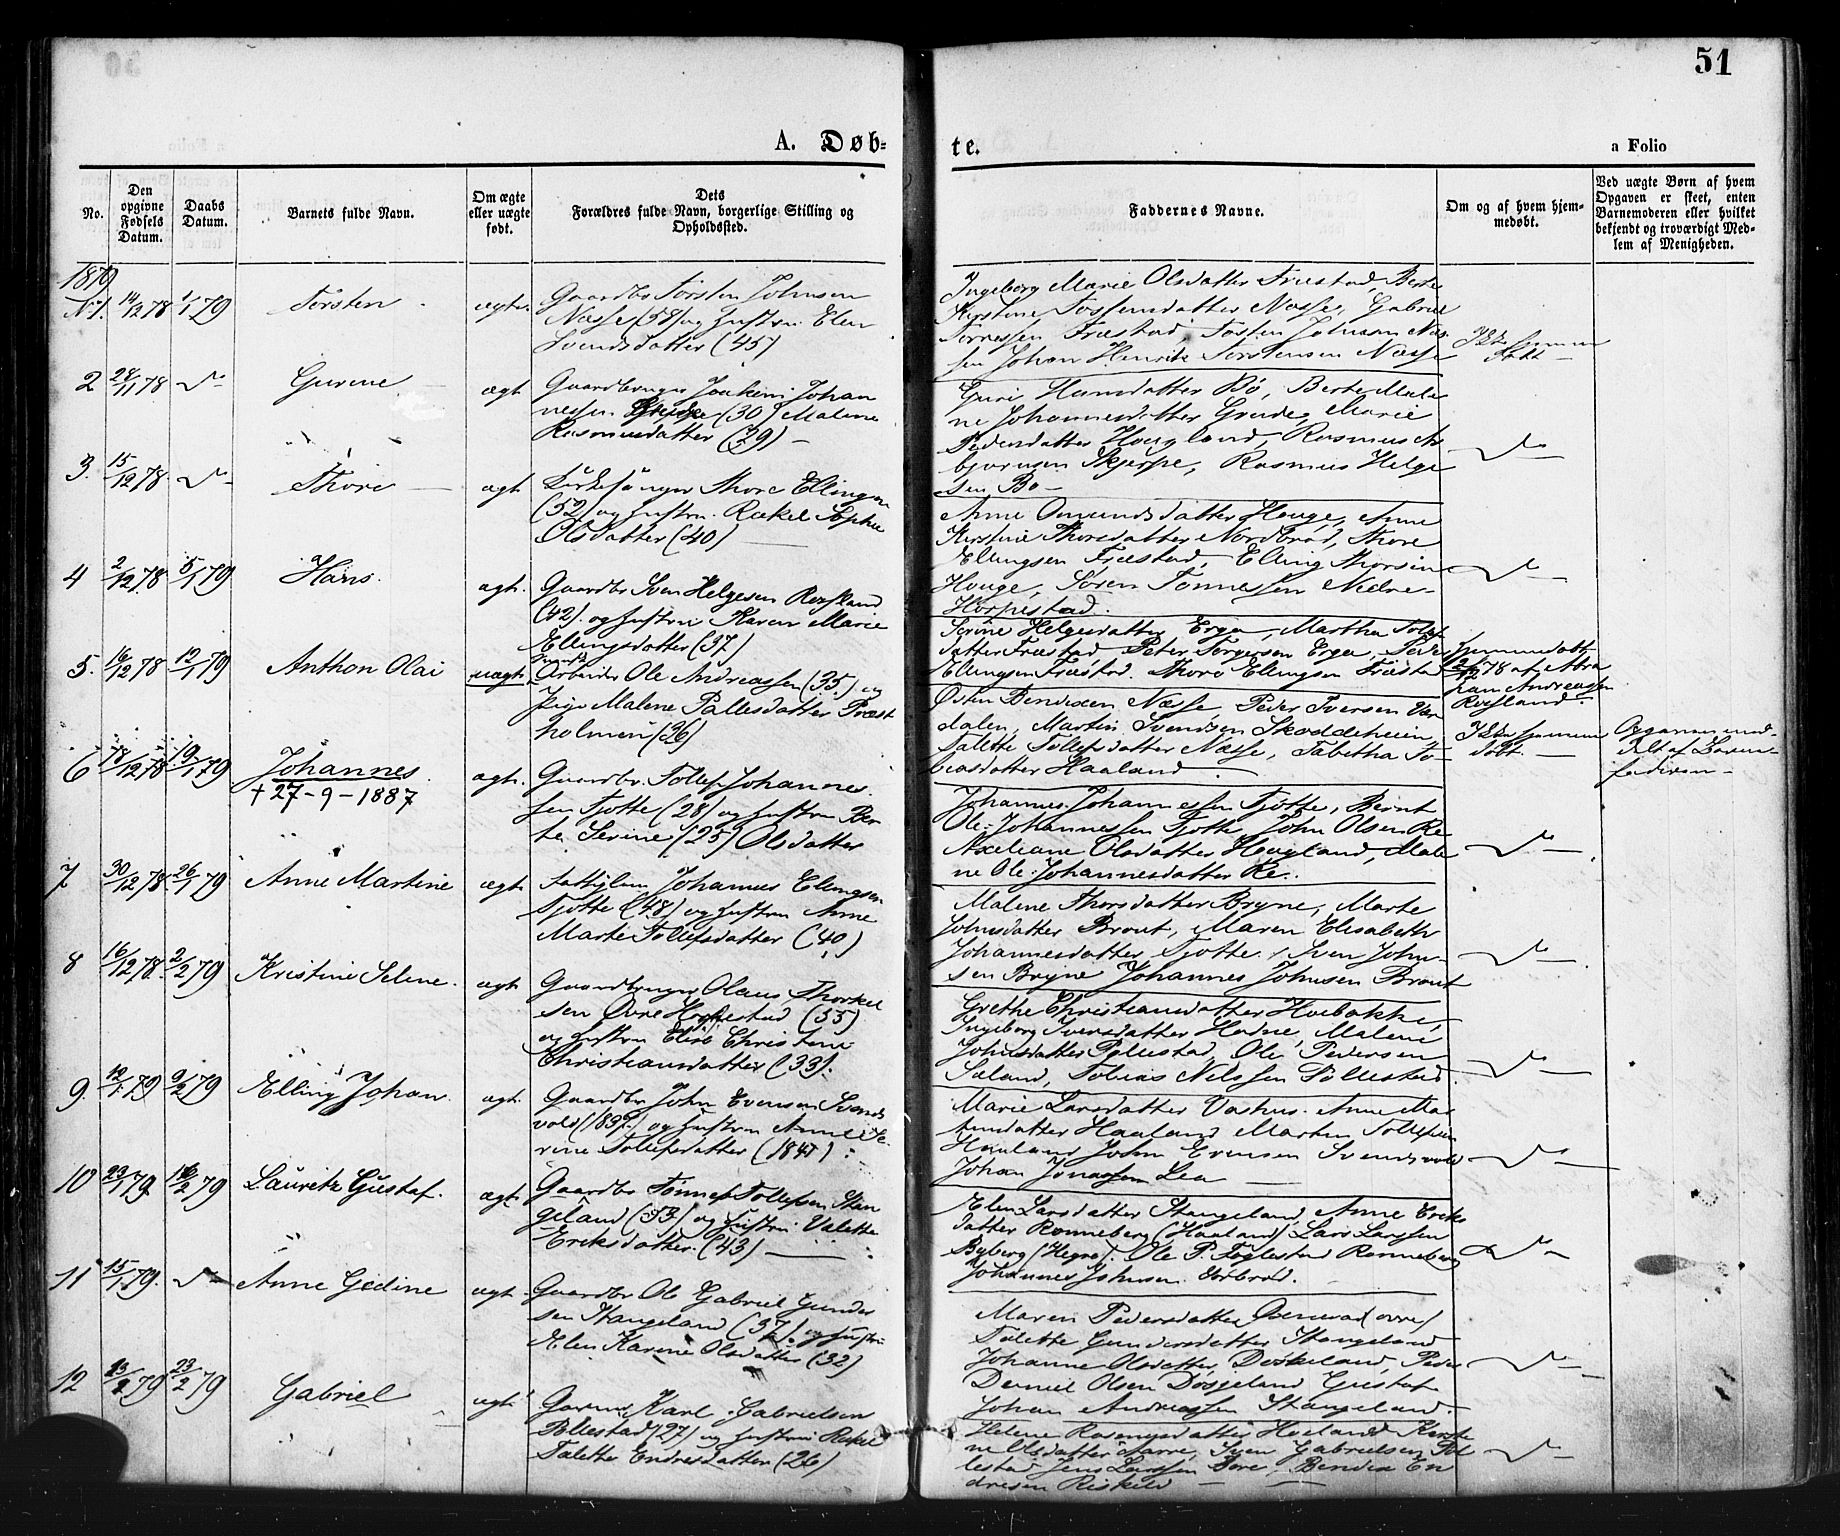 51
A. Døb-
te.
a Folio
No.
Den
opgivne
Fødsels
Datum.
Daabs
Datum.
Barnets fulde Navn.
Om ægte
eller uægte
født.
Dets
Forældres fulde Navn, borgerlige Stilling og
Opholdssted.
Faddernes Navne.
Om og af hvem hjem-
medøbt.
Ved uægte Børn af hvem
Opgaven er skeet, enten
Barnemoderen eller hvilket
bekjendt og troværdigt Med-
lem af Menigheden.
1879
N 1. 14/12 78 1/1 79 Torsten ægte. Gaardbr Torsten Johnsen
Næsse (58) og Hustru Elen
Svendsdatter (45)
Ingeborg Marie Olsdatter Fræstad, Berte
Kirstine Tostensdatter Næsse, Gabriel
Torressen Fræstad Tosten Johnsen Næs-
sen Johan Henrik Torstensen Næsse
2 28/11 78 Gurine ægt Gaardbruger Joakim Johan
nessen (30) Malene
Rasmusdatter (29) -
Guri Hansdatter Bø, Berte Male
ne Johannesdatter Grude, Marie
Pedersdatter Hougland, Rasmus As
bjørnsen Skjerpe, Rasmus Helge
sen Bø -
3. 15/12 78 Thore ægt Kirkesanger Thore Ellingsen
(52) og Hustru Rakel Sophie
Olsdatter (40)
Anne Omundsdatter Houge, Anne
Kirstine Thorsdatter Nordbrød, Thore
Ellingsen Fræstad, Elling Thorsen
Houge, Søren Tønnessen Nedre-
Horpestad.
4 2/12 78 5/1 79 Hans. ægt. Gaardbr Sven Helgesen Rogsland
(42). og Hustru Karen Marie
Ellingsdatter (37)
Serine Helgesdatter Erga, Martha Tolef
datter Fræstad Peter Torgersen Erga, Peder
Ellingsen Fræstad. Thore Ellingsen Fræstad
Hjemmedøbt
78 af Abra
ham Andreassen
Rogsland.
5. 16/12 78 12/1 79 Anthon Olai uægt Arbeider Ole Andreassen (35) og
Pige Malene Pallesdatter Præst
holmen (36)
Østen Bendixen Næsse, Peder Iversen Var
dalen, Martin Svendsen Skoddeheien
Talette Tollefsdatter Næsse, Tabitha To-
biasdatter Haaland
Ikke hjemme
døbt -
Opgaven med
delt af Barne
faderen -
6 18/12 78 19/1 79 Johannes.
† 27-9-1887
ægt. Gaardbr. Tollef Johannes.
sen Tjøtte (28) og Hustru Ber
te Serine (25) Olsdatter
Johannes Johannessen Tjøtte, Bernt
Ole Johannessen Tjøtte, John Olsen Re
Axeliane Olsdatter Hougland, Male
ne Ole Johannesdatter Re.
7 30/12 78 26/1 79 Anne Martine ægt Johannes Ellingsen
Tjøtte (48) og Hustru Anne
Marte Tollefsdatter (40)
Malene Thorsdatter Bryne, Marte
Johnsdatter Braut, Maren Elisabeth
Johannesdatter Tjøtte. Sven John-
sen Bryne Johannes Johnsen Braut
8 16/12 78. 2/2 79 Kristine Seline. ægt Gaardbruger Olaus Thorkel
sen Øvre Horpestad (55)
og Hustru Elise Christine
Christiansdatter (33).
Grethe Christiansdatter Hoebakke,
Ingeborg Iversdatter Hodne, Malene
Johnsdatter Pollestad, Ole Pedersen
Sæland, Tobias Nilssen Pollestad.
9. 12/1 79 9/2 79 Elling Johan. ægt. Gaardbr John Evensen Svends
vold (1839) og Hustru Anne Se-
rine Tollefsdatter (1841)
Marie Larsdatter Vashus. Anne Mar
tinsdatter Haaland Morten Tollefsen
Haaland John Evensen Svendsvold
Johan Jonassen Lea
10 23/1 79 16/2 79 Lauritz Gustaf. ægt. Gaardbr Tønnes Tollefsen Stan
geland (53) og Hustru Valette
Eriksdatter. (43)
Elen Larsdatter Stangeland, Anne Eriks
datter Ronneberg (Haaland) Lars Larssen
Byberg (Hegre). Ole P. Foglestad Ronneberg
Johannes Johnsen
11 15/1 79. Anne Gedine ægt. Gaardbr Ole Gabriel Gunder
sen Stangeland (37) og Hustru
Elen Karine Olsdatter (32)
Maren Pedersdatter
Talette Gundersdatter Stangeland
Johanne Olsdatter, Døskeland, Peder
Daniel Olsen Døsjeland Gustaf
Johan Andreassen Stangeland.
12 13/2 79 23/2 79 Gabriel ægt Karl Gabrielsen
Pollestad (27) og Hustru Rakel
Talette Endresdatter (26)
Helene Rasmusdatter Hoeland Kirsti
ne Olsdatter Sven Gabrielsen Pol
lestad Jens Larssen Bore, Bendix En
dresen Riskeld -